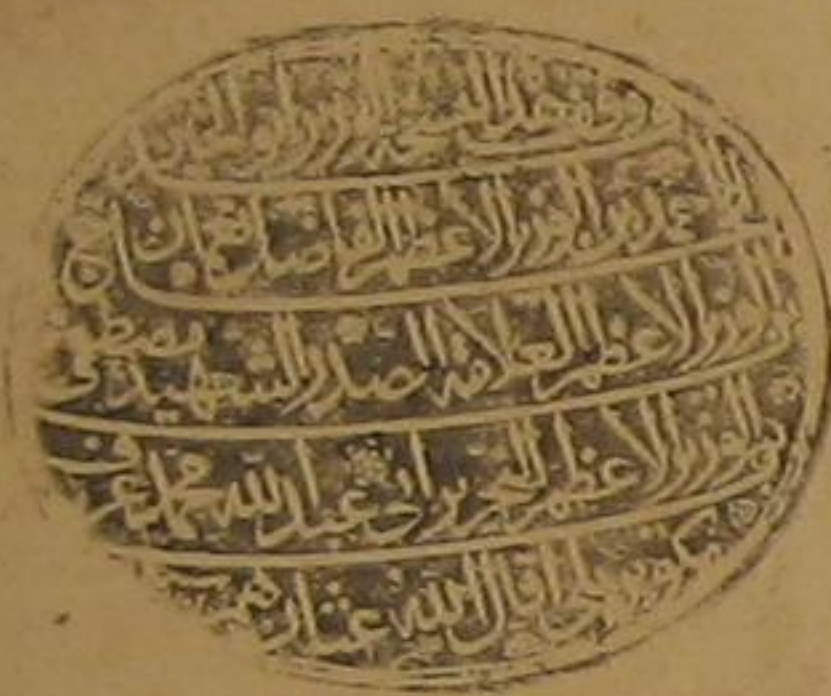 وقف هذه النسخة الوزير ابو العباس
احمد بن الوزير الاعظم الفاضل نعمان بن
الوزير الاعظم العلامة الصدر الشهيد مصطفى
بن الوزير الاعظم النحرير ابي عبد الله محمد عرف
بكوبريلي اقال الله عثارهم